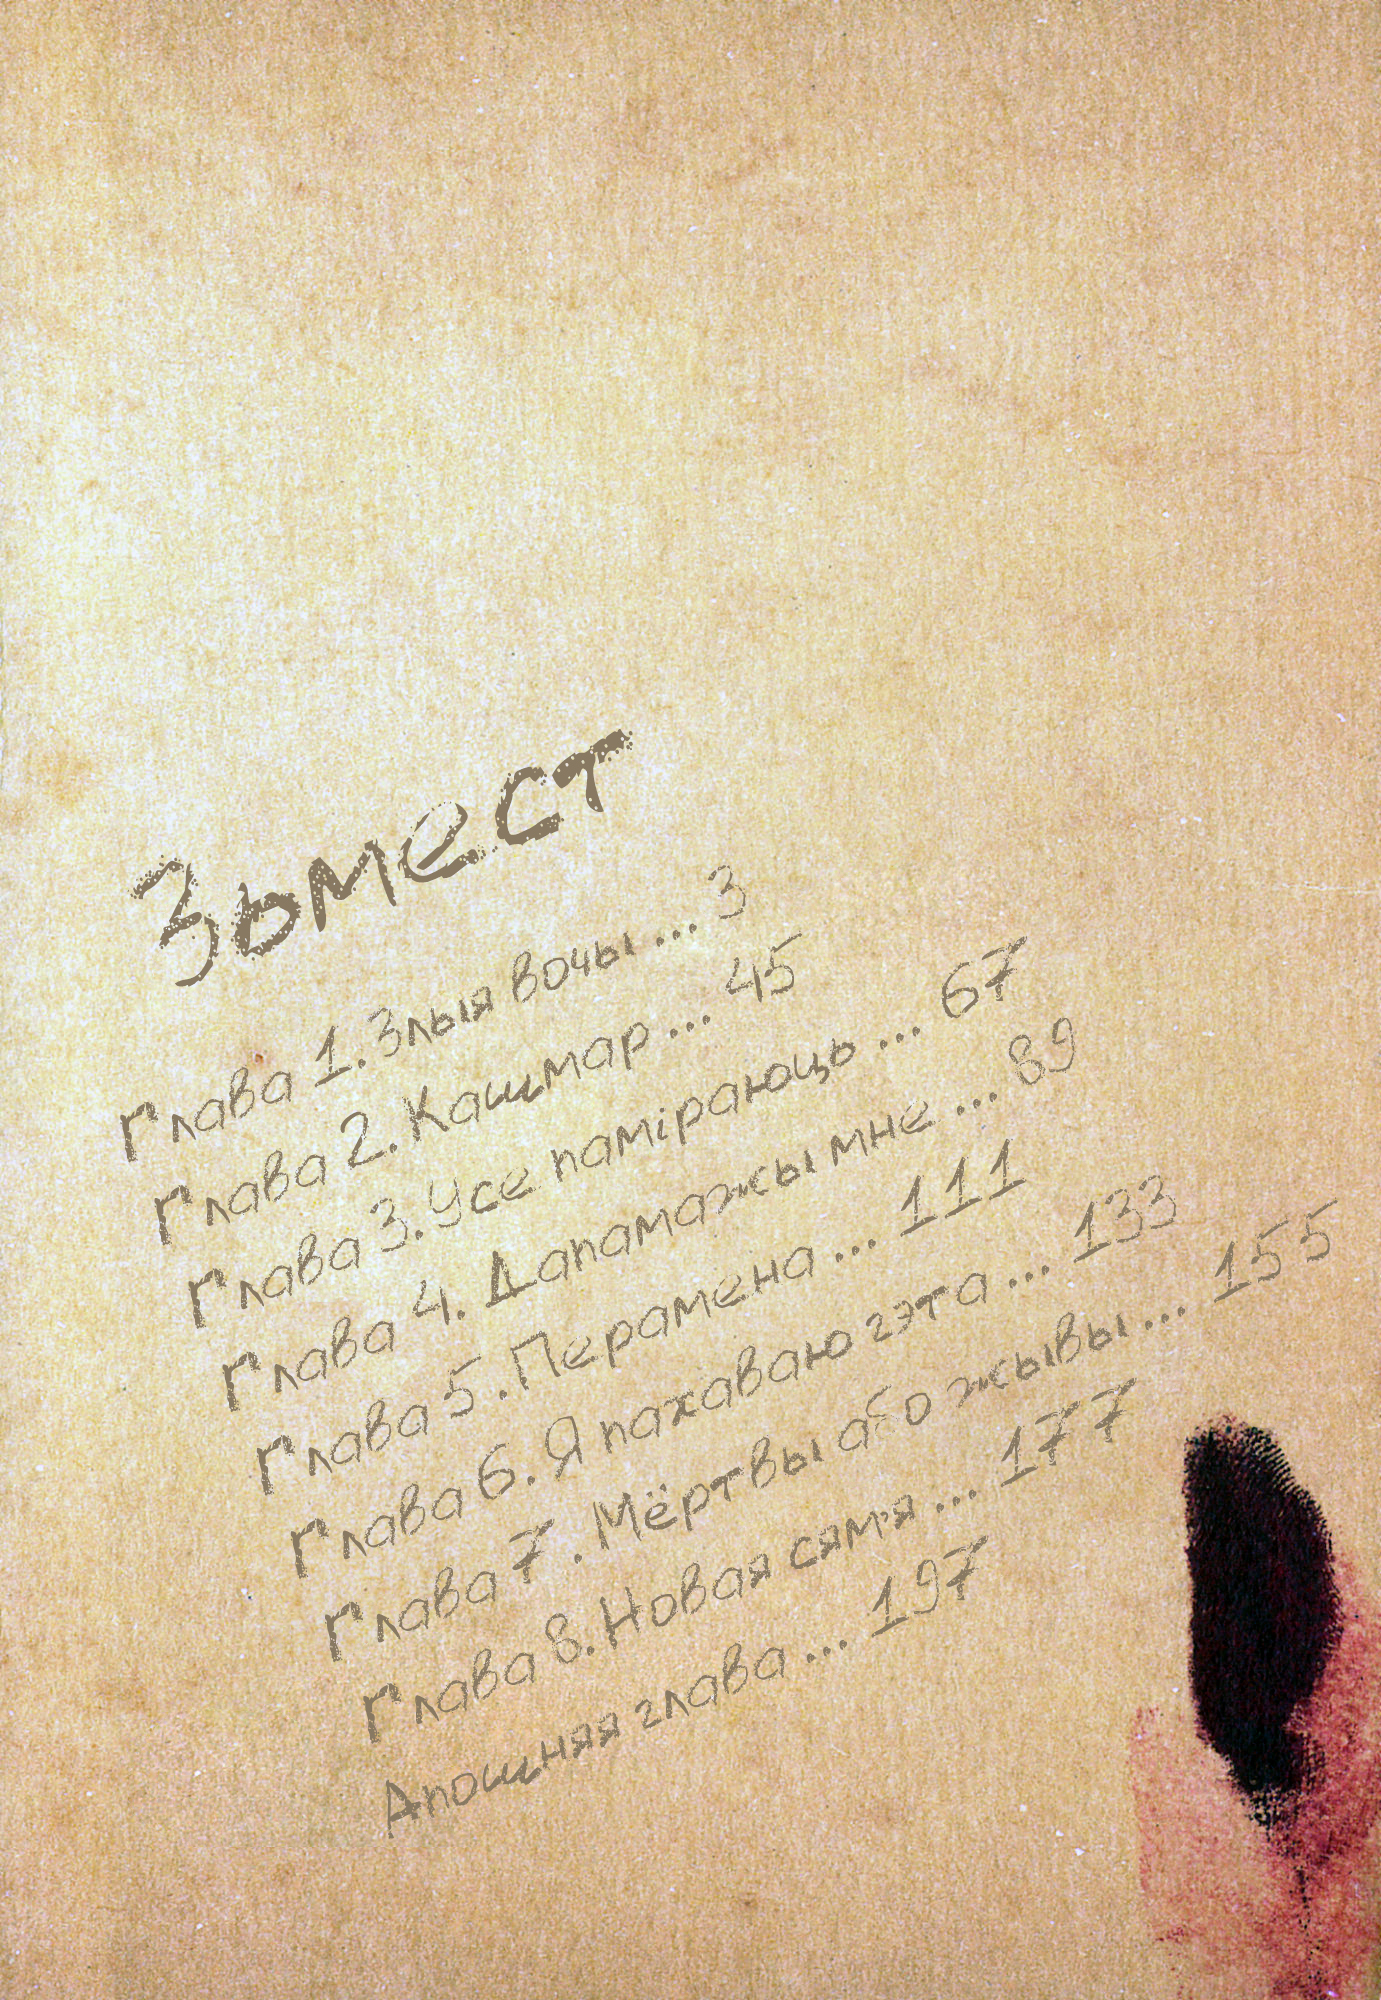 Зьмест
Глава 1. Злыя вочы ... 3
Глава 2. Кашмар ... 45
Глава 3. Усе паміраюць ... 67
Глава 4. Дапамажы мне ... 89
Глава 5. Перамена ... 111
Глава 6. Я пахаваю гэта ... 133
Глава 7. Мёртвы або жывы ... 155
Глава 8. Новая сям'я ... 177
Апошняя глава ... 197